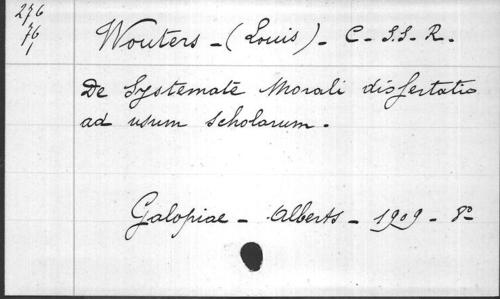 276
76
1
Wouters - (Louis) - C. S.S. R.
De Systemate Morali dissertatio
ad usum scholarum.
Galopiae - Alberts - 1909 - 8°